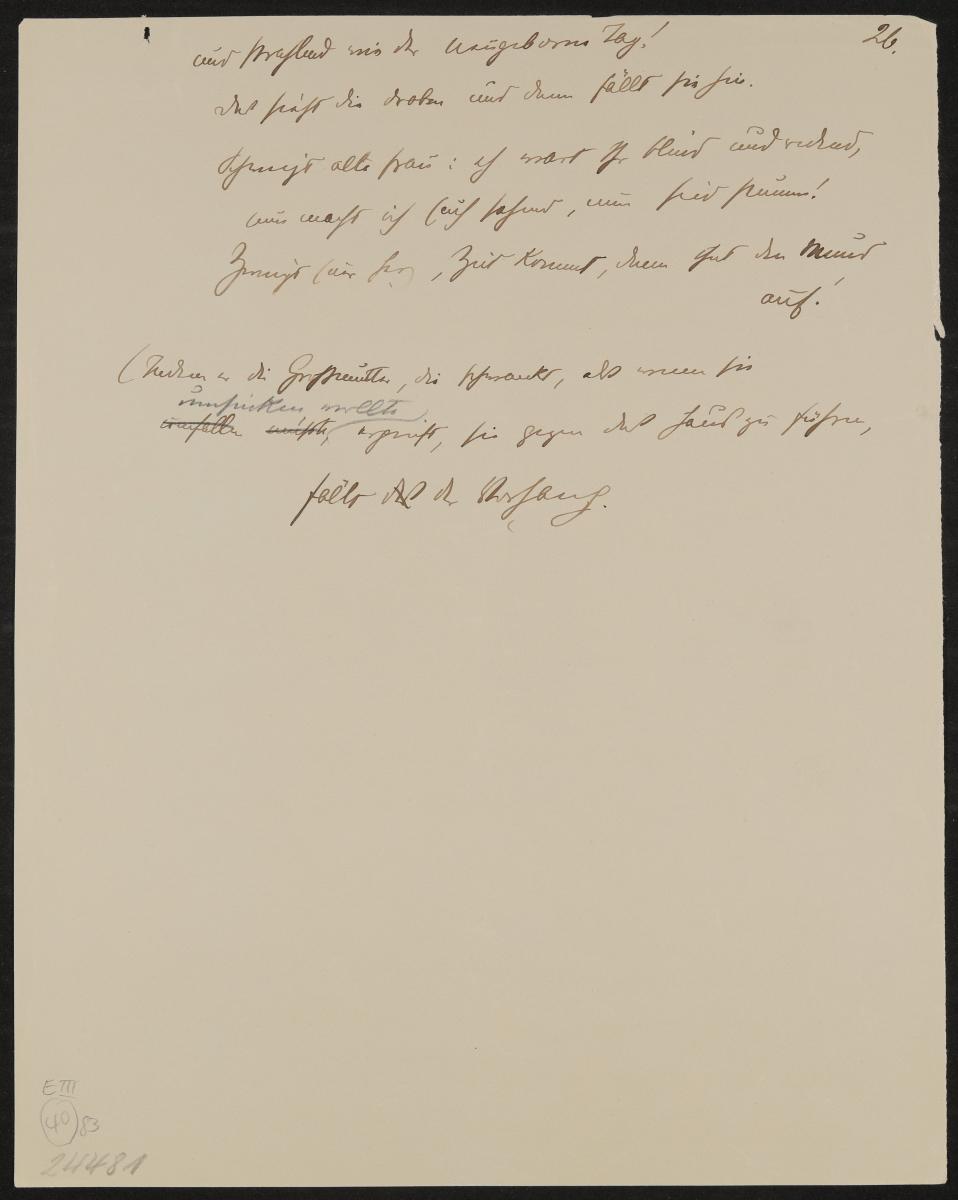 26.
und strahlend wie der neugeborne Tag!
das sieht die droben und dann fällt sie hin.
Schweigt alte Frau: ich wart Ihr blind und redend,
nun macht ich Euch sehend, nun seid stumm!
Zwingt Euer Herz, Zeit kommt, dann thut den Mund
auf!
(Indem er die Großmutter, die schwankt, als wenn sie
umsinken wollte,
umfallen müßte, ergreift, sie gegen das Haus zu führen,
fällt der Vorhang.
E III
40 83
24481